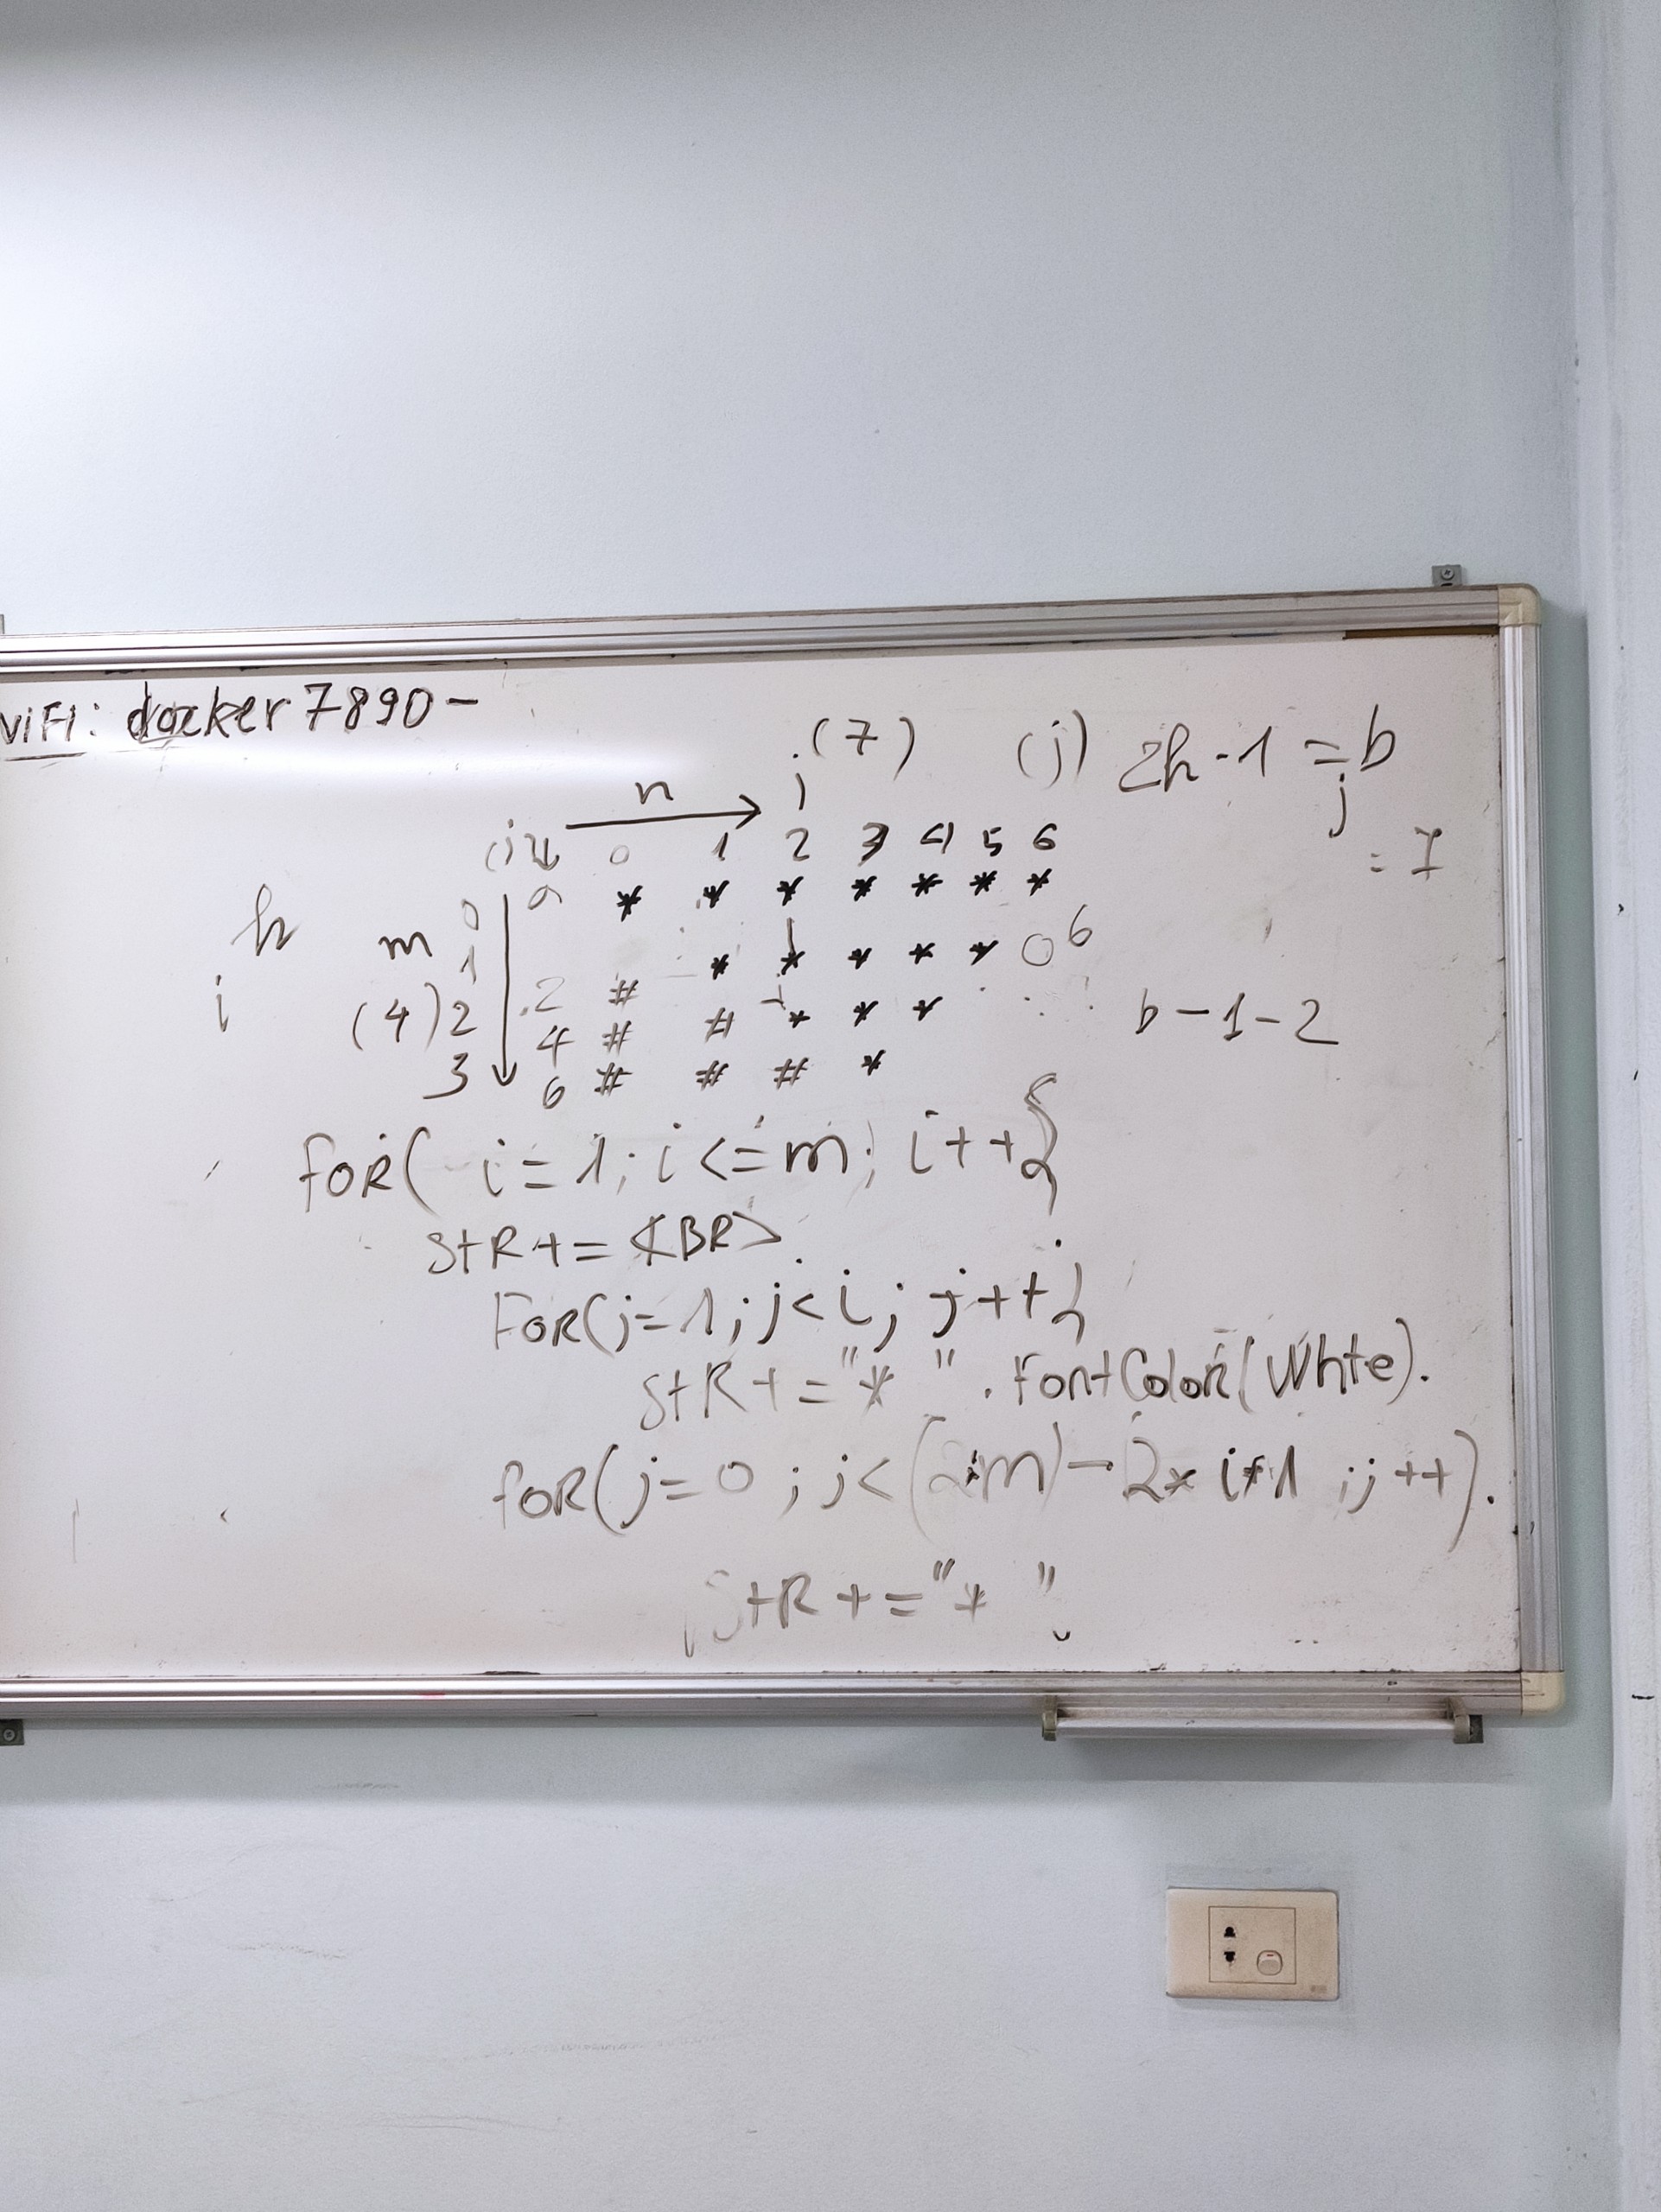 WiFi: docker7890-
(7) (j) 2h-1 = b
n j j
(i) 0 1 2 3 4 5 6 = 7
0 0 * * * * * * *
h m 1 * * * * * 0 6
i (4) 2 2 # # * * * b-1-2
3 4 #
6 # # # *
FOR( i=1; i<=m; i++{
StR += <BR>
FOR(j=1; j<i; j++{
StR += "* ".FontColor(Whte).
FOR(j=0; j<(2*m)-2*i+1 ;j++).
StR += "* "